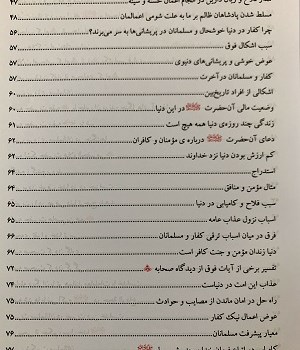 مسلط شدن پادشاهان ظالم بر ما به علت شومی اعمالمان ۴۸
چرا کفار در دنیا خوشحال و مسلمانان در پریشانی‌ها به سر می‌برند؟ ۵۶
سبب اشکال فوق ۵۷
عوض خوشی و پریشانی‌های دنیوی ۵۷
کفار و مسلمانان در آخرت ۵۷
اشکالی از افراد تاریخ‌بین ۶۰
وضعیت مالی آن‌حضرت ﷺ در این دنیا ۶۰
زندگی چند روزه‌ی دنیا همه هیچ است ۶۱
دعای آن‌حضرت ﷺ درباره ی مؤمنان و کافران ۶۲
کم ارزش بودن دنیا نزد خداوند ۶۲
استدراج ۶۳
مثال مؤمن و منافق ۶۴
سبب فلاح و کامیابی در دنیا ۶۵
اسباب نزول عذاب عامه ۶۵
فرق در میان اسباب ترقی کفار و مسلمانان ۶۶
دنیا زندان مؤمن و جنت کافر است ۶۷
تفسیر برخی از آیات فوق از دیدگاه صحابه ۷۲
عذاب این امت در دنیاست ۷۴
راه حل در امان ماندن از مصایب و حوادث ۷۵
عوض اعمال نیک کفار ۷۵
معیار پیشرفت مسلمانان ۷۶
۷۷